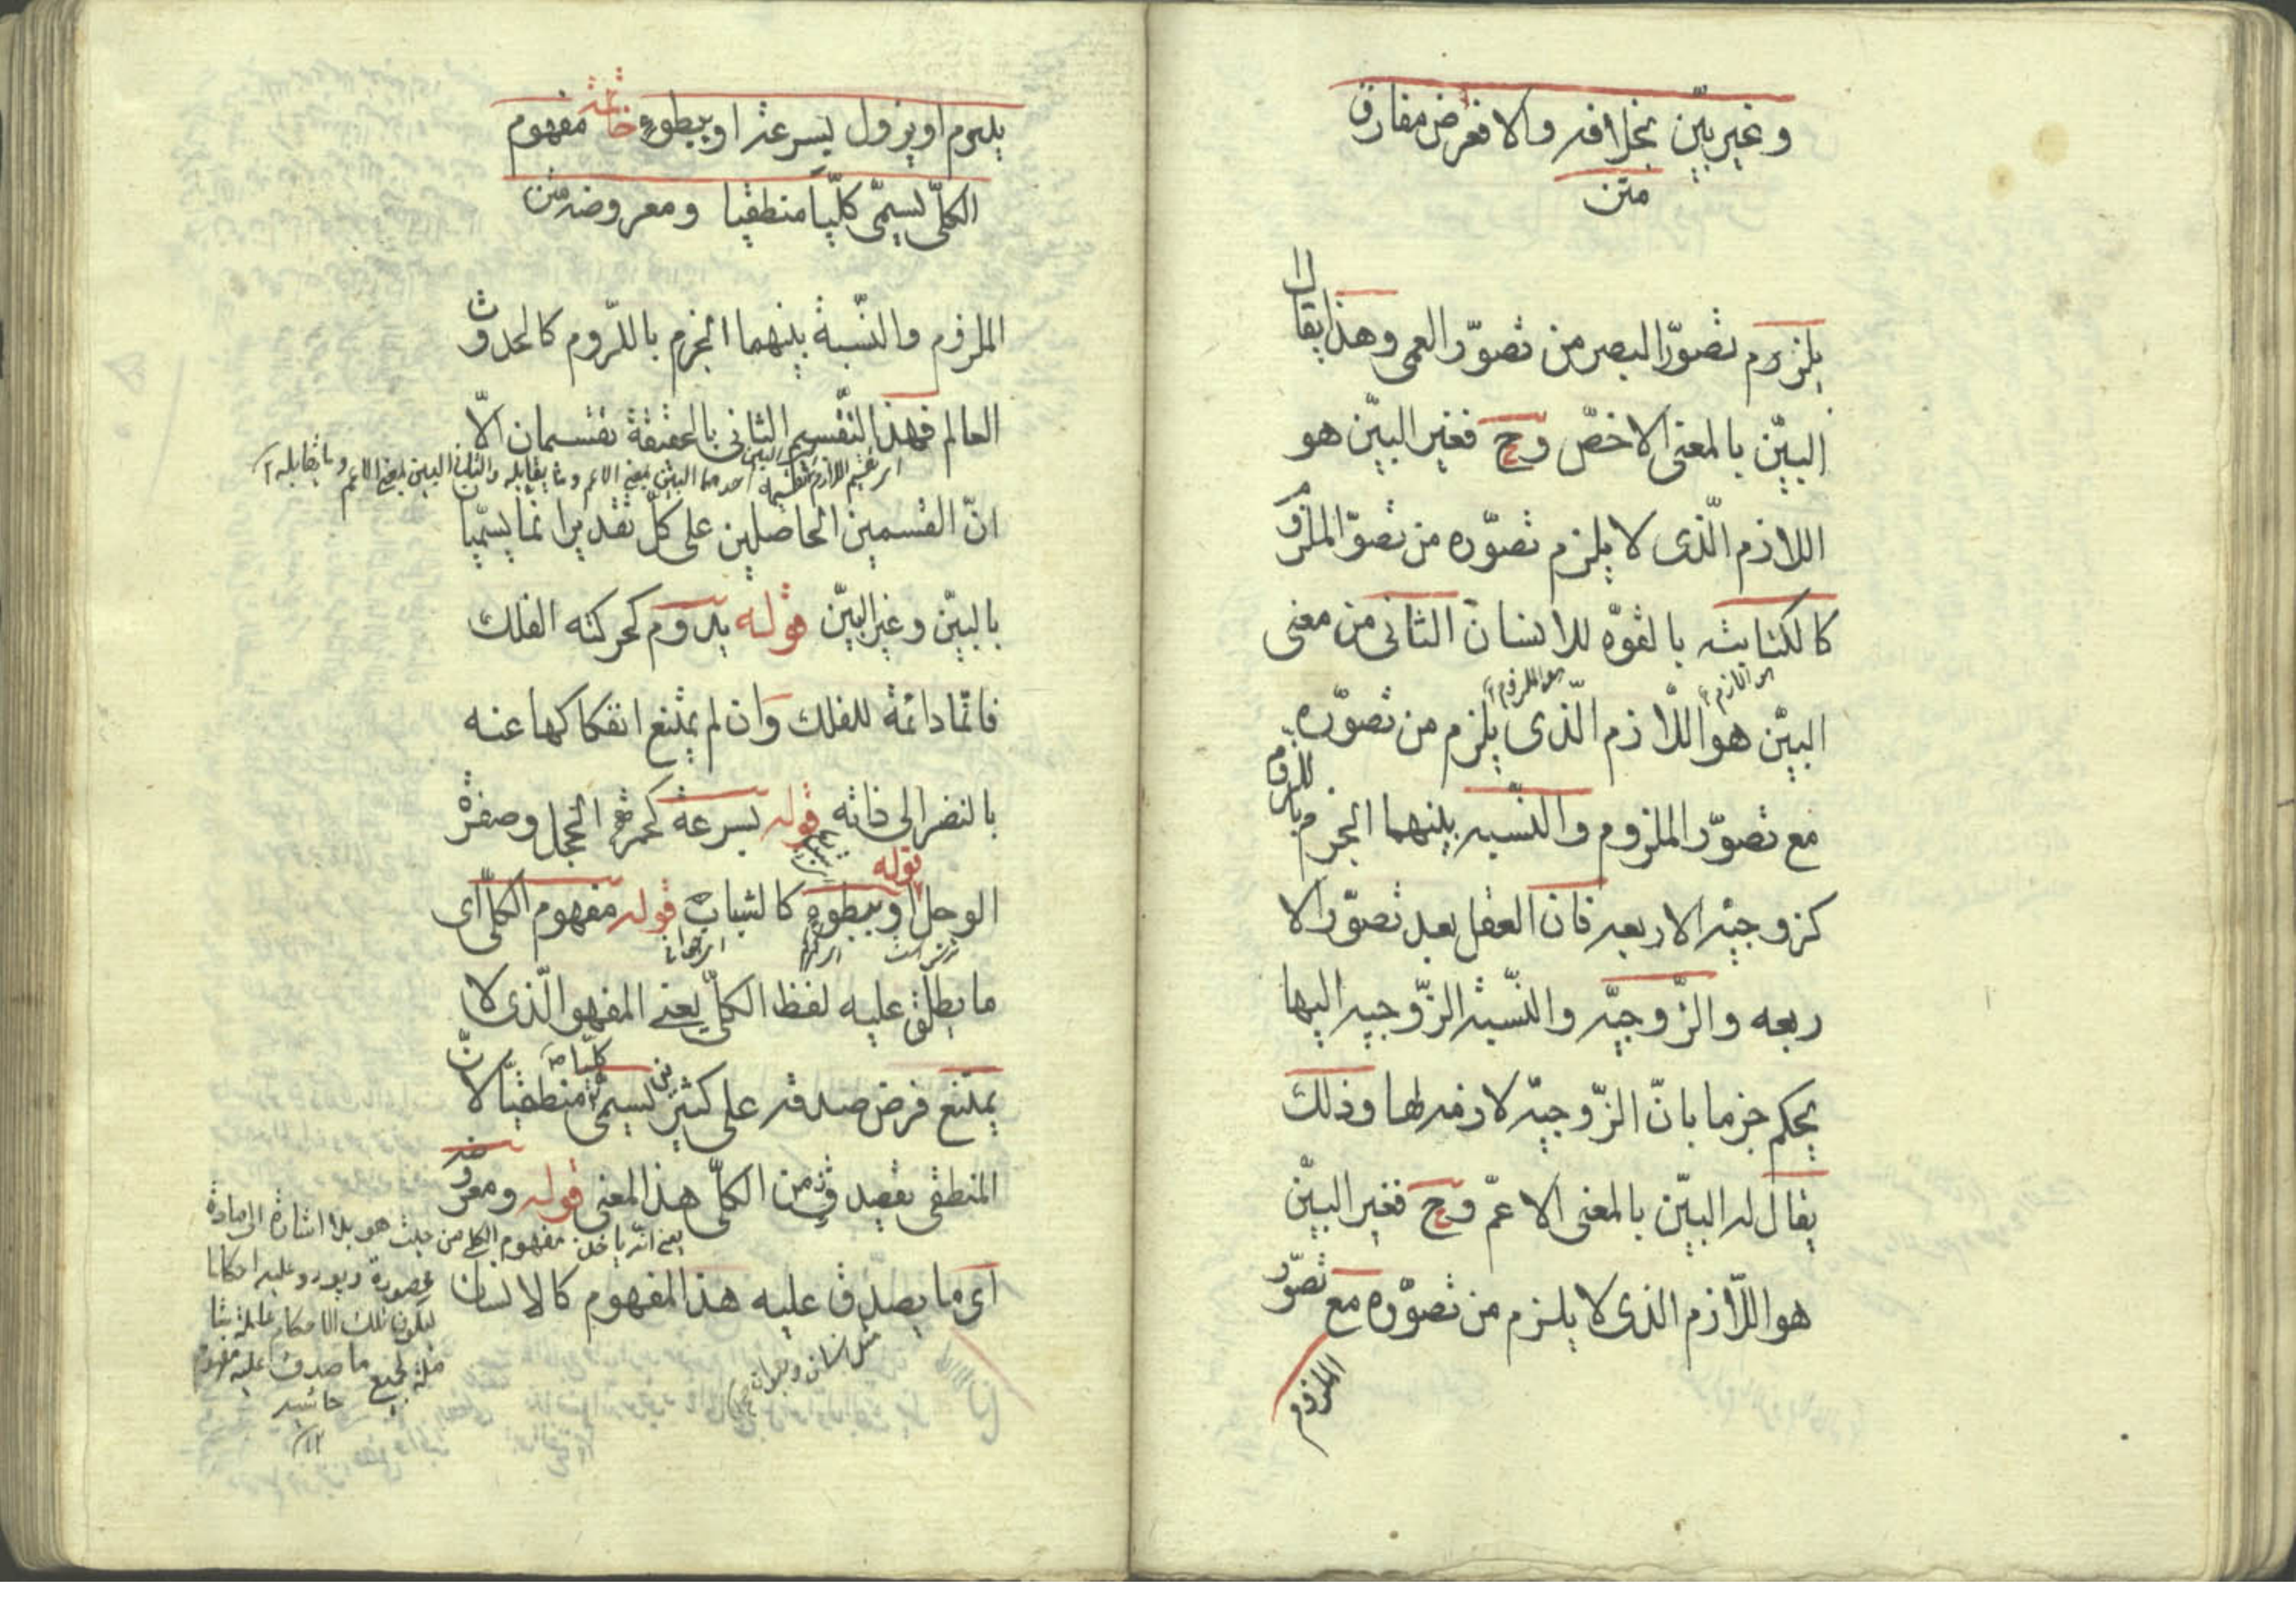 وغير بيّن بخلافه والا فعرض مفارق
متن
يلزوم تصوّر البصر من تصوّر العمى وهذا يقال
البيّن بالمعنى الاخصّ وح فغير البيّن هو
اللازم الّذى لا يلزم تصوّره من تصوّ الملزوم
كالكتابته بالقوّه للانسان الثانى من معنى
هو اللازم
هو الملزوم
البيّن هو اللّازم الّذى يلزم من تصوّره
مع تصوّر الملزوم والنّسبه بينهما الجزم باللزوم
كزوجيّه الاربعه فان العقل بعد تصوّر الا
ربعه والزّوجيّه والنّسبة الزّوجيه اليها
يحكم جزما بانّ الزّوجيّه لازمه لها وذلك
يقال له البيّن بالمعنى الاعمّ وح فغير البيّن
هو اللّازم الذى لا يلزم من تصوّره مع تصوّر
الملزوم
يلزم او يزول بسرعة او ببطوءٍ خاتمة مفهوم
الكلّى يسمّى كلّياً منطقيا ومعروضه متن
الملزوم والنّسبة بينهما الجزم باللزوم كالحدوث
العالم فهذا التّقسيم الثانى بالحقيقة تقسيمان الّا
احدهما البيّن بمعنى الاعم وما يقابله والثانى البين بمعنى الاعم وما يقابله
انّ القسمين الحاصلين على كلّ تقدير انما يسمّيا
بالبيّن وغير البيّن قوله يدوم كحركته الفلك
فانّها دائمة للفلك وان لم يمتنع انفكاكها عنه
بالنضر الى ذاته قوله بسرعة كحمرة الخجل وصفرة
الوجل قوله او ببطوءٍ كالشباب قوله مفهوم الكلّى اى
ما يطلق عليه لفظ الكلّى يعنى المفهو الّذى لا
يمتنع فرض صدقه على كثيرين يسمّى كلّيا منطقيّا لانّ
المنطقى يقصد من الكلّى هذا المعنى قوله ومعروضه
يعنى انّه ياخذ مفهوم الكلى من حيث هو بلا اشارة الى مادة
اى ما يصدق عليه هذا المفهوم كالانسان
مخصوصة ويورد عليه احكاما
ليكون تلك الاحكام عامة شا
ملة لجميع ما صدق عليه مفهو
حاشيه
١٢